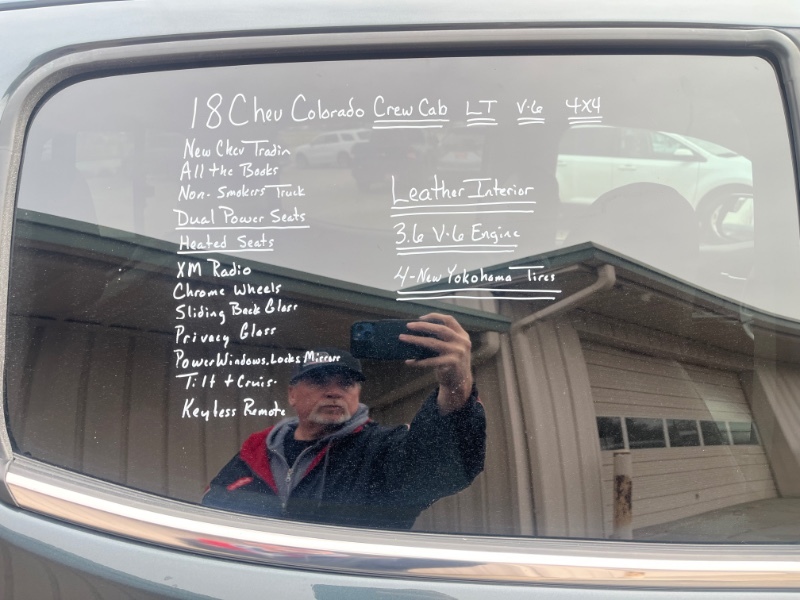 18 Chev Colorado Crew Cab LT V-6 4x4
New Chev Tradin
All the Books
Non-Smokers Truck
Dual Power Seats
Heated Seats
XM Radio
Chrome Wheels
Sliding Back Glass
Privacy Glass
Power Windows, Locks, Mirrors
Tilt + Cruis.
Keyless Remote
Leather Interior
3.6 V-6 Engine
4-New Yokohama Tires